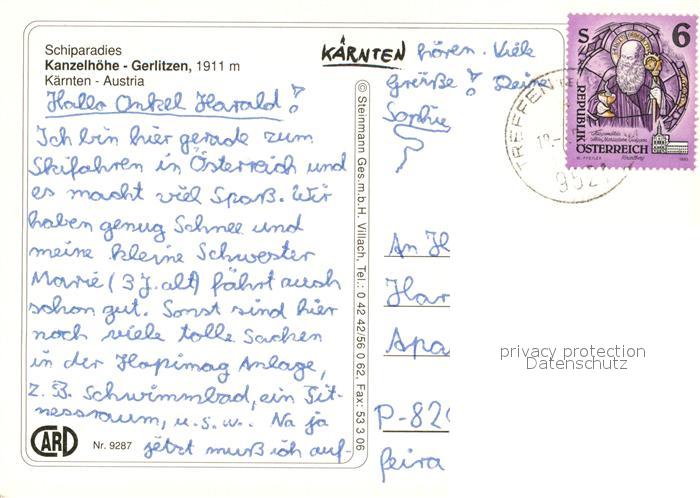 Schiparadies
Kanzelhöhe - Gerlitzen, 1911 m
Kärnten - Austria
Hallo Onkel Harald!
Ich bin hier gerade zum
Skifahren in Österreich und
es macht viel Spaß. Wir
haben genug Schnee und
meine kleine Schwester
Marie (3 J. alt) fährt auch
schon gut. Sonst sind hier
noch viele tolle Sachen
in der Hapimag Anlage,
z. B. Schwimmbad, ein Fit-
nessraum, u.s.w.. Na ja
jetzt muß ich auf-
CARD
Nr. 9287
© Steinmann Ges.m.b.H. Villach, Tel.: 0 42 42/56 0 62, Fax: 53 3 06
KÄRNTEN hören. Viele
Grüße! Deine
Sophie
S 6
REPUBLIK
ÖSTERREICH
TREFFEN
952
An H
Har
Apa
P-820
feira
privacy protection
Datenschutz